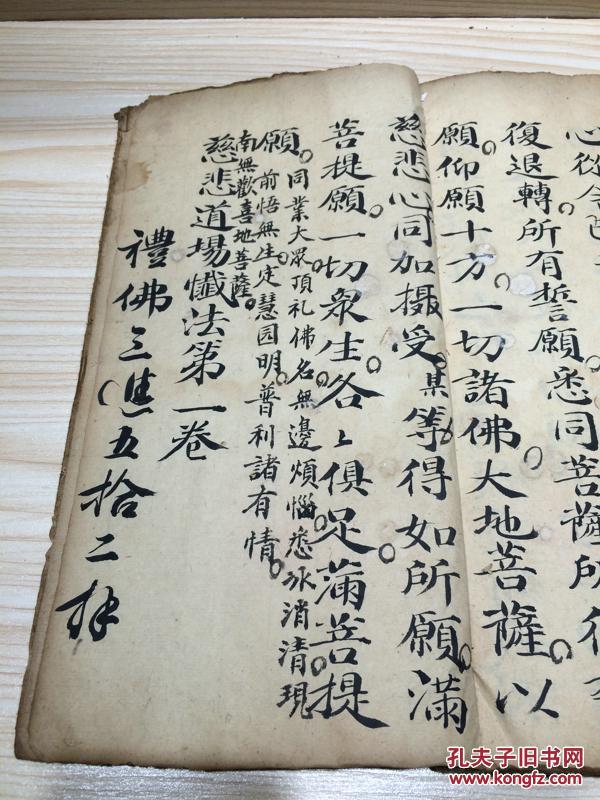 心從今
復退轉所有誓願悉同菩薩所
願仰願十方一切諸佛大地菩薩以
慈悲心同加攝受某等得如所願滿
菩提願一切衆生各々俱足滿菩提
願同業大眾頂礼佛名無邊煩惱悉氷消清現
前悟無生定慧园明普利諸有情
南無歡喜地菩薩
慈悲道場懺法第一卷
禮佛三遍五拾二拜
孔夫子旧书网
www.kongfz.com